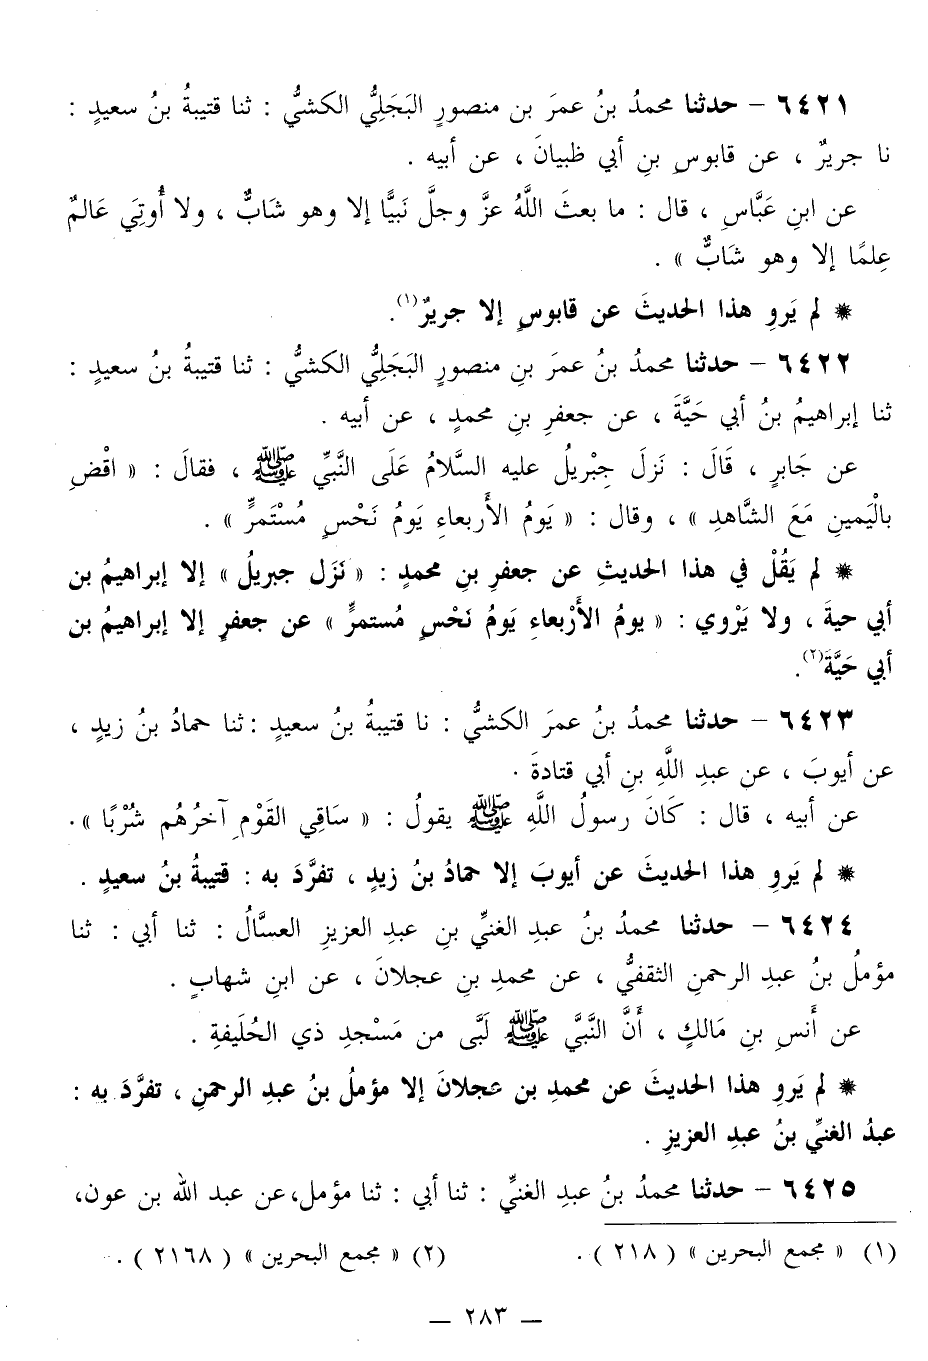 ٦٤٢١ – حدثنا محمدُ بنُ عمرَ بن منصورٍ البَجَلِيُّ الكشيُّ : ثنا قتيبةُ بنُ سعيدٍ :
نا جريرٌ ، عن قابوسِ بنِ أبي ظبيانَ ، عن أبيه .
عن ابنِ عَبَّاسٍ ، قال : ما بعثَ اللَّهُ عزَّ وجلَّ نَبيًّا إلا وهو شَابٌّ ، ولا أُوتِيَ عَالمٌ
عِلمًا إلا وهو شَابٌّ » .
* لم يَروِ هذا الحديثَ عن قابوسٍ إلا جريرٌ(١).
٦٤٢٢ – حدثنا محمدُ بنُ عمرَ بنِ منصورٍ البَجَلِيُّ الكشيُّ : ثنا قتيبةُ بنُ سعيدٍ :
ثنا إبراهيمُ بنُ أبي حَيَّةَ ، عن جعفرِ بنِ محمدٍ ، عن أبيه .
عن جَابرٍ ، قَالَ : نَزلَ جِبْريلُ عليه السَّلامُ عَلَى النَّبيِّ ﷺ ، فقالَ : « اقْضِ
بالْيَمينِ مَعَ الشَّاهدِ » ، وقال : « يَومُ الأَربعاءِ يَومُ نَحْسٍ مُسْتَمرٍّ » .
* لم يَقُلْ في هذا الحديثِ عن جعفرِ بنِ محمدٍ : « نَزَل جبريلُ » إلا إبراهيمُ بن
أبي حيةَ ، ولا يَرْوي : « يومُ الأَرْبعاءِ يَومُ نَحْسٍ مُستمرٍّ » عن جعفرٍ إلا إبراهيمُ بن
أبي حَيَّةَ(٢).
٦٤٢٣ – حدثنا محمدُ بنُ عمرَ الكشيُّ : نا قتيبةُ بنُ سعيدٍ : ثنا حمادُ بنُ زيدٍ ،
عن أيوبَ ، عن عبدِ اللَّهِ بنِ أبي قتادةَ .
عن أبيه ، قال : كَانَ رسولُ اللَّهِ ﷺ يقولُ : « سَاقِي القَوْمِ آخرُهُم شُرْبًا ».
* لم يَروِ هذا الحديثَ عن أيوبَ إلا حمادُ بنُ زيدٍ ، تفرَّدَ به : قتيبةُ بنُ سعيدٍ .
٦٤٢٤ – حدثنا محمدُ بنُ عبدِ الغنيِّ بنِ عبدِ العزيزِ العسَّالُ : ثنا أبي : ثنا
مؤملُ بنُ عبدِ الرحمنِ الثقفيُّ ، عن محمدِ بنِ عجلانَ ، عن ابنِ شهابٍ .
عن أَنسِ بنِ مَالكٍ ، أَنَّ النَّبيَّ ﷺ لَبَّى من مَسْجدِ ذي الحُلَيفةِ .
* لم يَروِ هذا الحديثَ عن محمدِ بن عجلانَ إلا مؤملُ بنُ عبدِ الرحمنِ ، تفرَّدَ به :
عبدُ الغنيِّ بنُ عبدِ العزيزِ .
٦٤٢٥ – حدثنا محمدُ بنُ عبدِ الغنيِّ : ثنا أبي : ثنا مؤمل، عن عبد الله بن عون،
(١) « مجمع البحرين » ( ٢١٨ ) . (٢) « مجمع البحرين » ( ٢١٦٨ ) .
— ٢٨٣ —